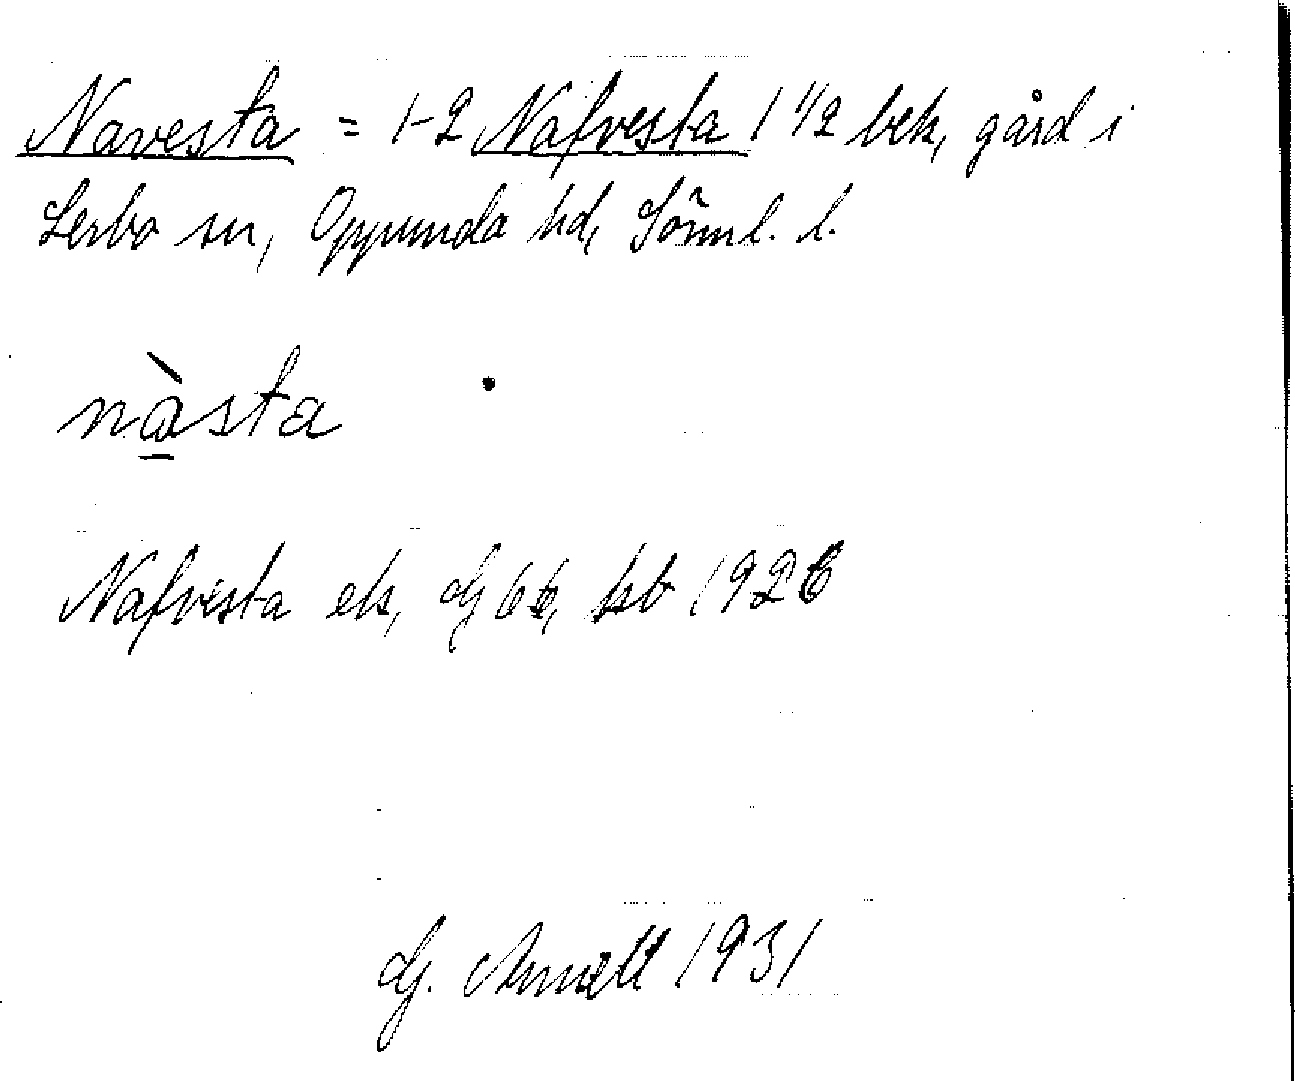 Navesta = 1-2 Nafvesta 1 1/2 bek, gård i
Lerbo sn, Oppunda hd, Södml. l.
nàsta
Nafvesta ek, 66, ksb 1926
G. Arnell 1931